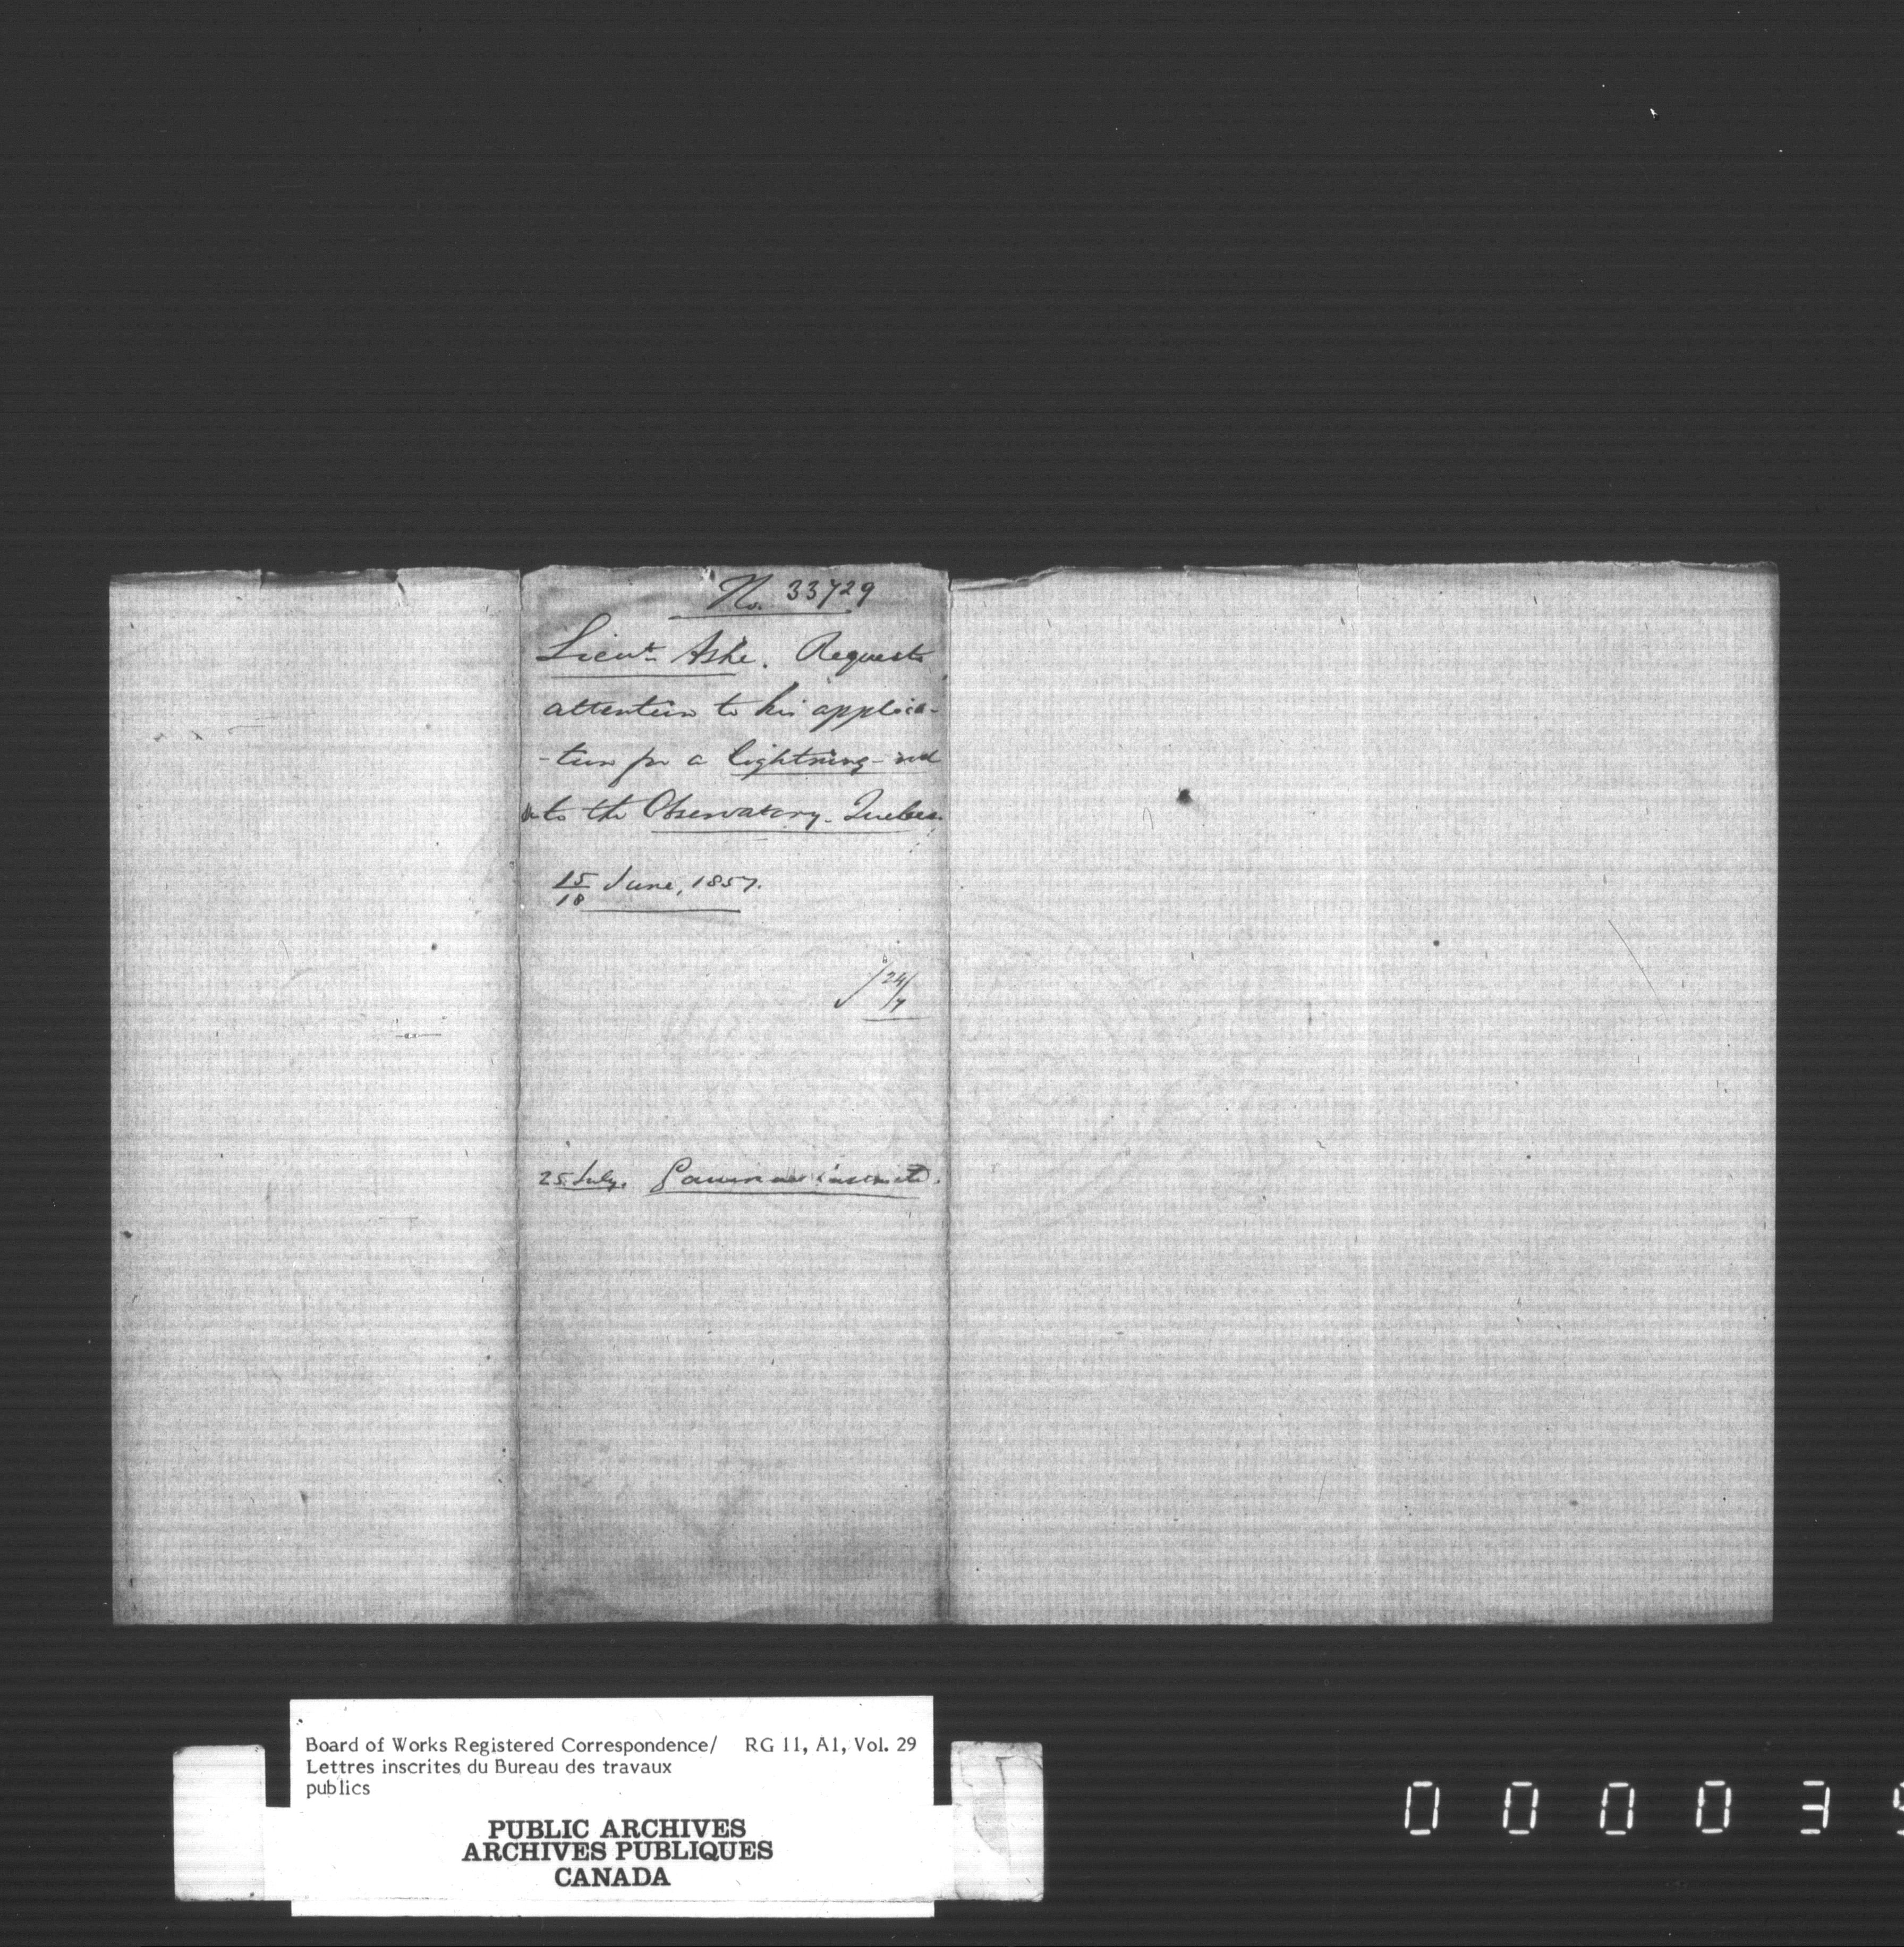 No. 33729
Lieut. Ashe. Requests
attention to his applica-
-tion for a lightning-rod
to the Observatory. Quebec.
15/18 June, 1857.
24/7
25 July.
Board of Works Registered Correspondence/ RG 11, A1, Vol. 29
Lettres inscrites du Bureau des travaux
publics
PUBLIC ARCHIVES
ARCHIVES PUBLIQUES
CANADA
0 0 0 0 3